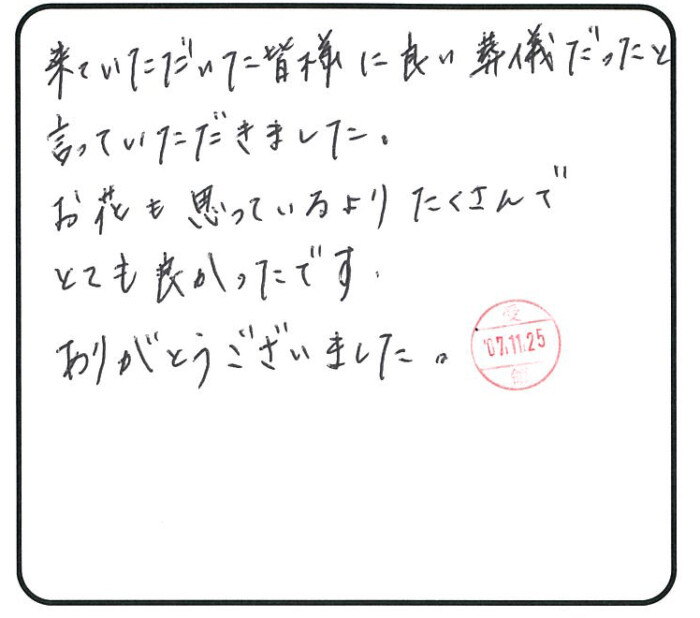 来ていただいた皆様に良い葬儀だったと
言っていただきました。
お花も思っているよりたくさんで
とても良かったです.
ありがとうございました。
受
'07.11.25